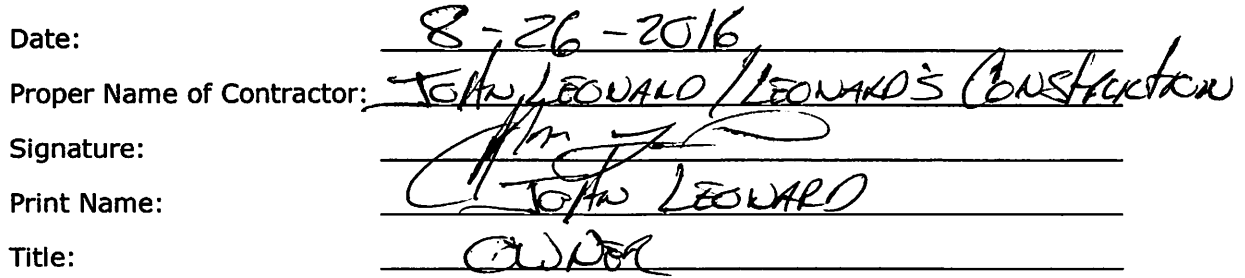 Date: 8-26-2016
Proper Name of Contractor: JOHN LEONARD / LEONARD'S CONSTRUCTION
Signature:
Print Name: JOHN LEONARD
Title: OWNER